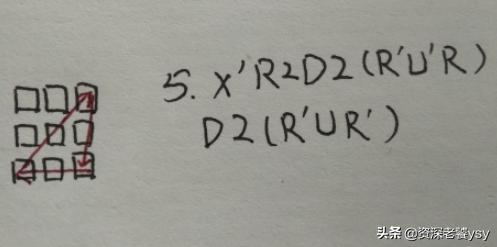 5. x'R2D2(R'U'R)
D2(R'UR')
头条 @资深老饕ysy